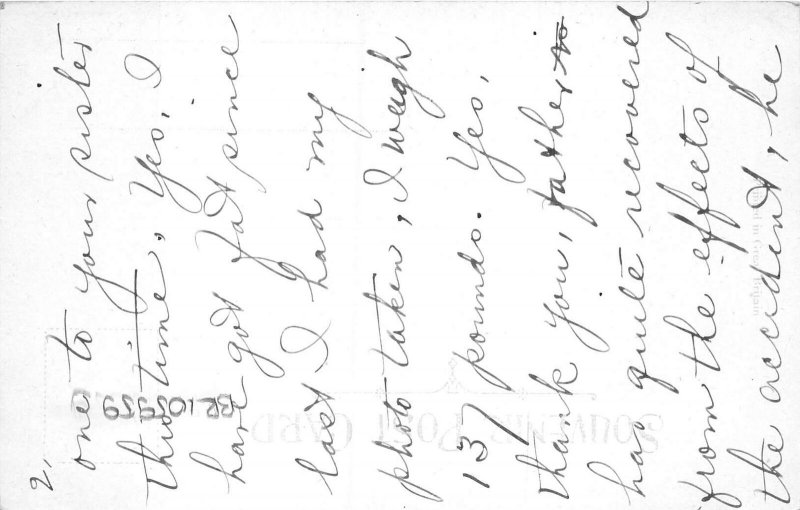 2.
one to your sister
this time. Yes, I
have got fat since
last I had my
photo taken, I weigh
137 pounds. Yes,
thank you, father
has quite recovered
from the effects of
the accident, he
SOUVENIR POST CARD
BR105959